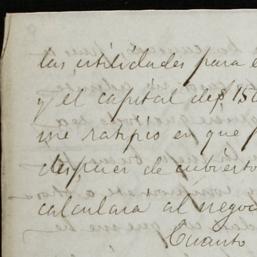 las utilidades para e
y el capital de $ 150
me ratifico en que
despues de cubierto
calculara al nego
Cuanto